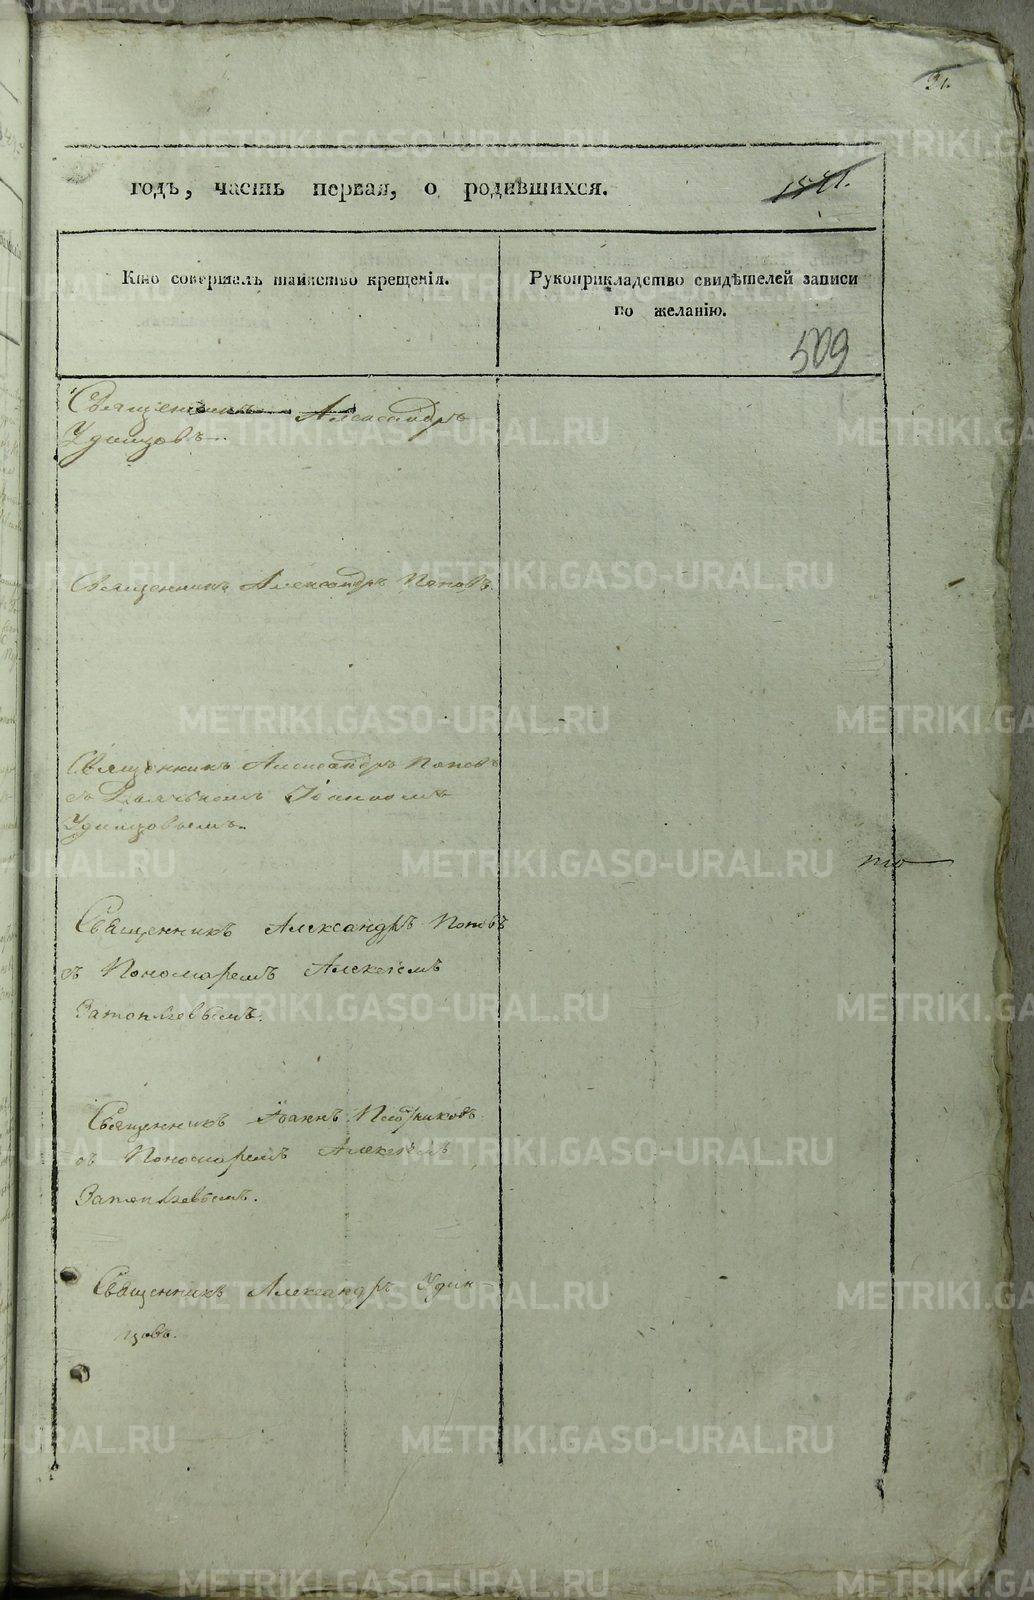 годъ, часть первая, о родившихся.
Кто совершалъ таинство крещенія.
Рукоприкладство свидѣтелей записи
по желанію.
509
Священникъ Александръ
Удинцовъ.
Священникъ Александръ Поповъ.
Священникъ Александръ Поповъ
съ Дьячкомъ
Удинцовымъ.
то
Священникъ Александръ Поповъ
съ Пономаремъ Алексѣемъ
Затопляевымъ.
Священникъ Іоаннъ Плотниковъ
съ Пономаремъ Алексѣемъ
Священникъ Александръ Удин
цовъ.
METRIKI.GASO-URAL.RU